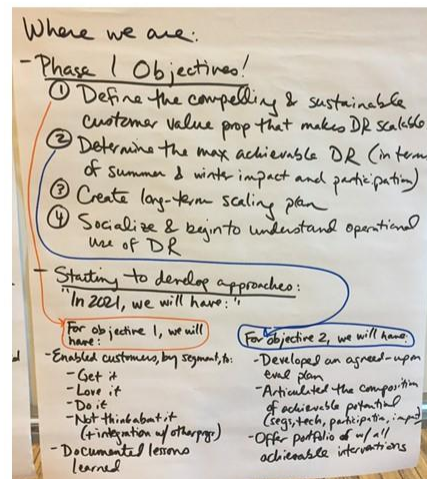 Where we are:
- Phase 1 Objectives!
① Define the compelling & sustainable
customer value prop that makes DR scalable
② Determine the max achievable DR (in term
of summer & winter impact and participation)
③ Create long-term scaling plan
④ Socialize & begin to understand operational
use of DR
- Starting to develop approaches:
"In 2021, we will have:"
For objective 1, we will
have:
- Enabled customers, by segment, to:
- Get it
- Love it
- Do it
- Not think about it
(+ integration w/ other
- Documented lessons
learned
For objective 2, we will have:
- Developed an agreed-upon
eval plan
- Articulated the composition
of achievable potential
(segs, tech, participation, impact)
- Offer portfolio of w/ all
achievable interventions
d